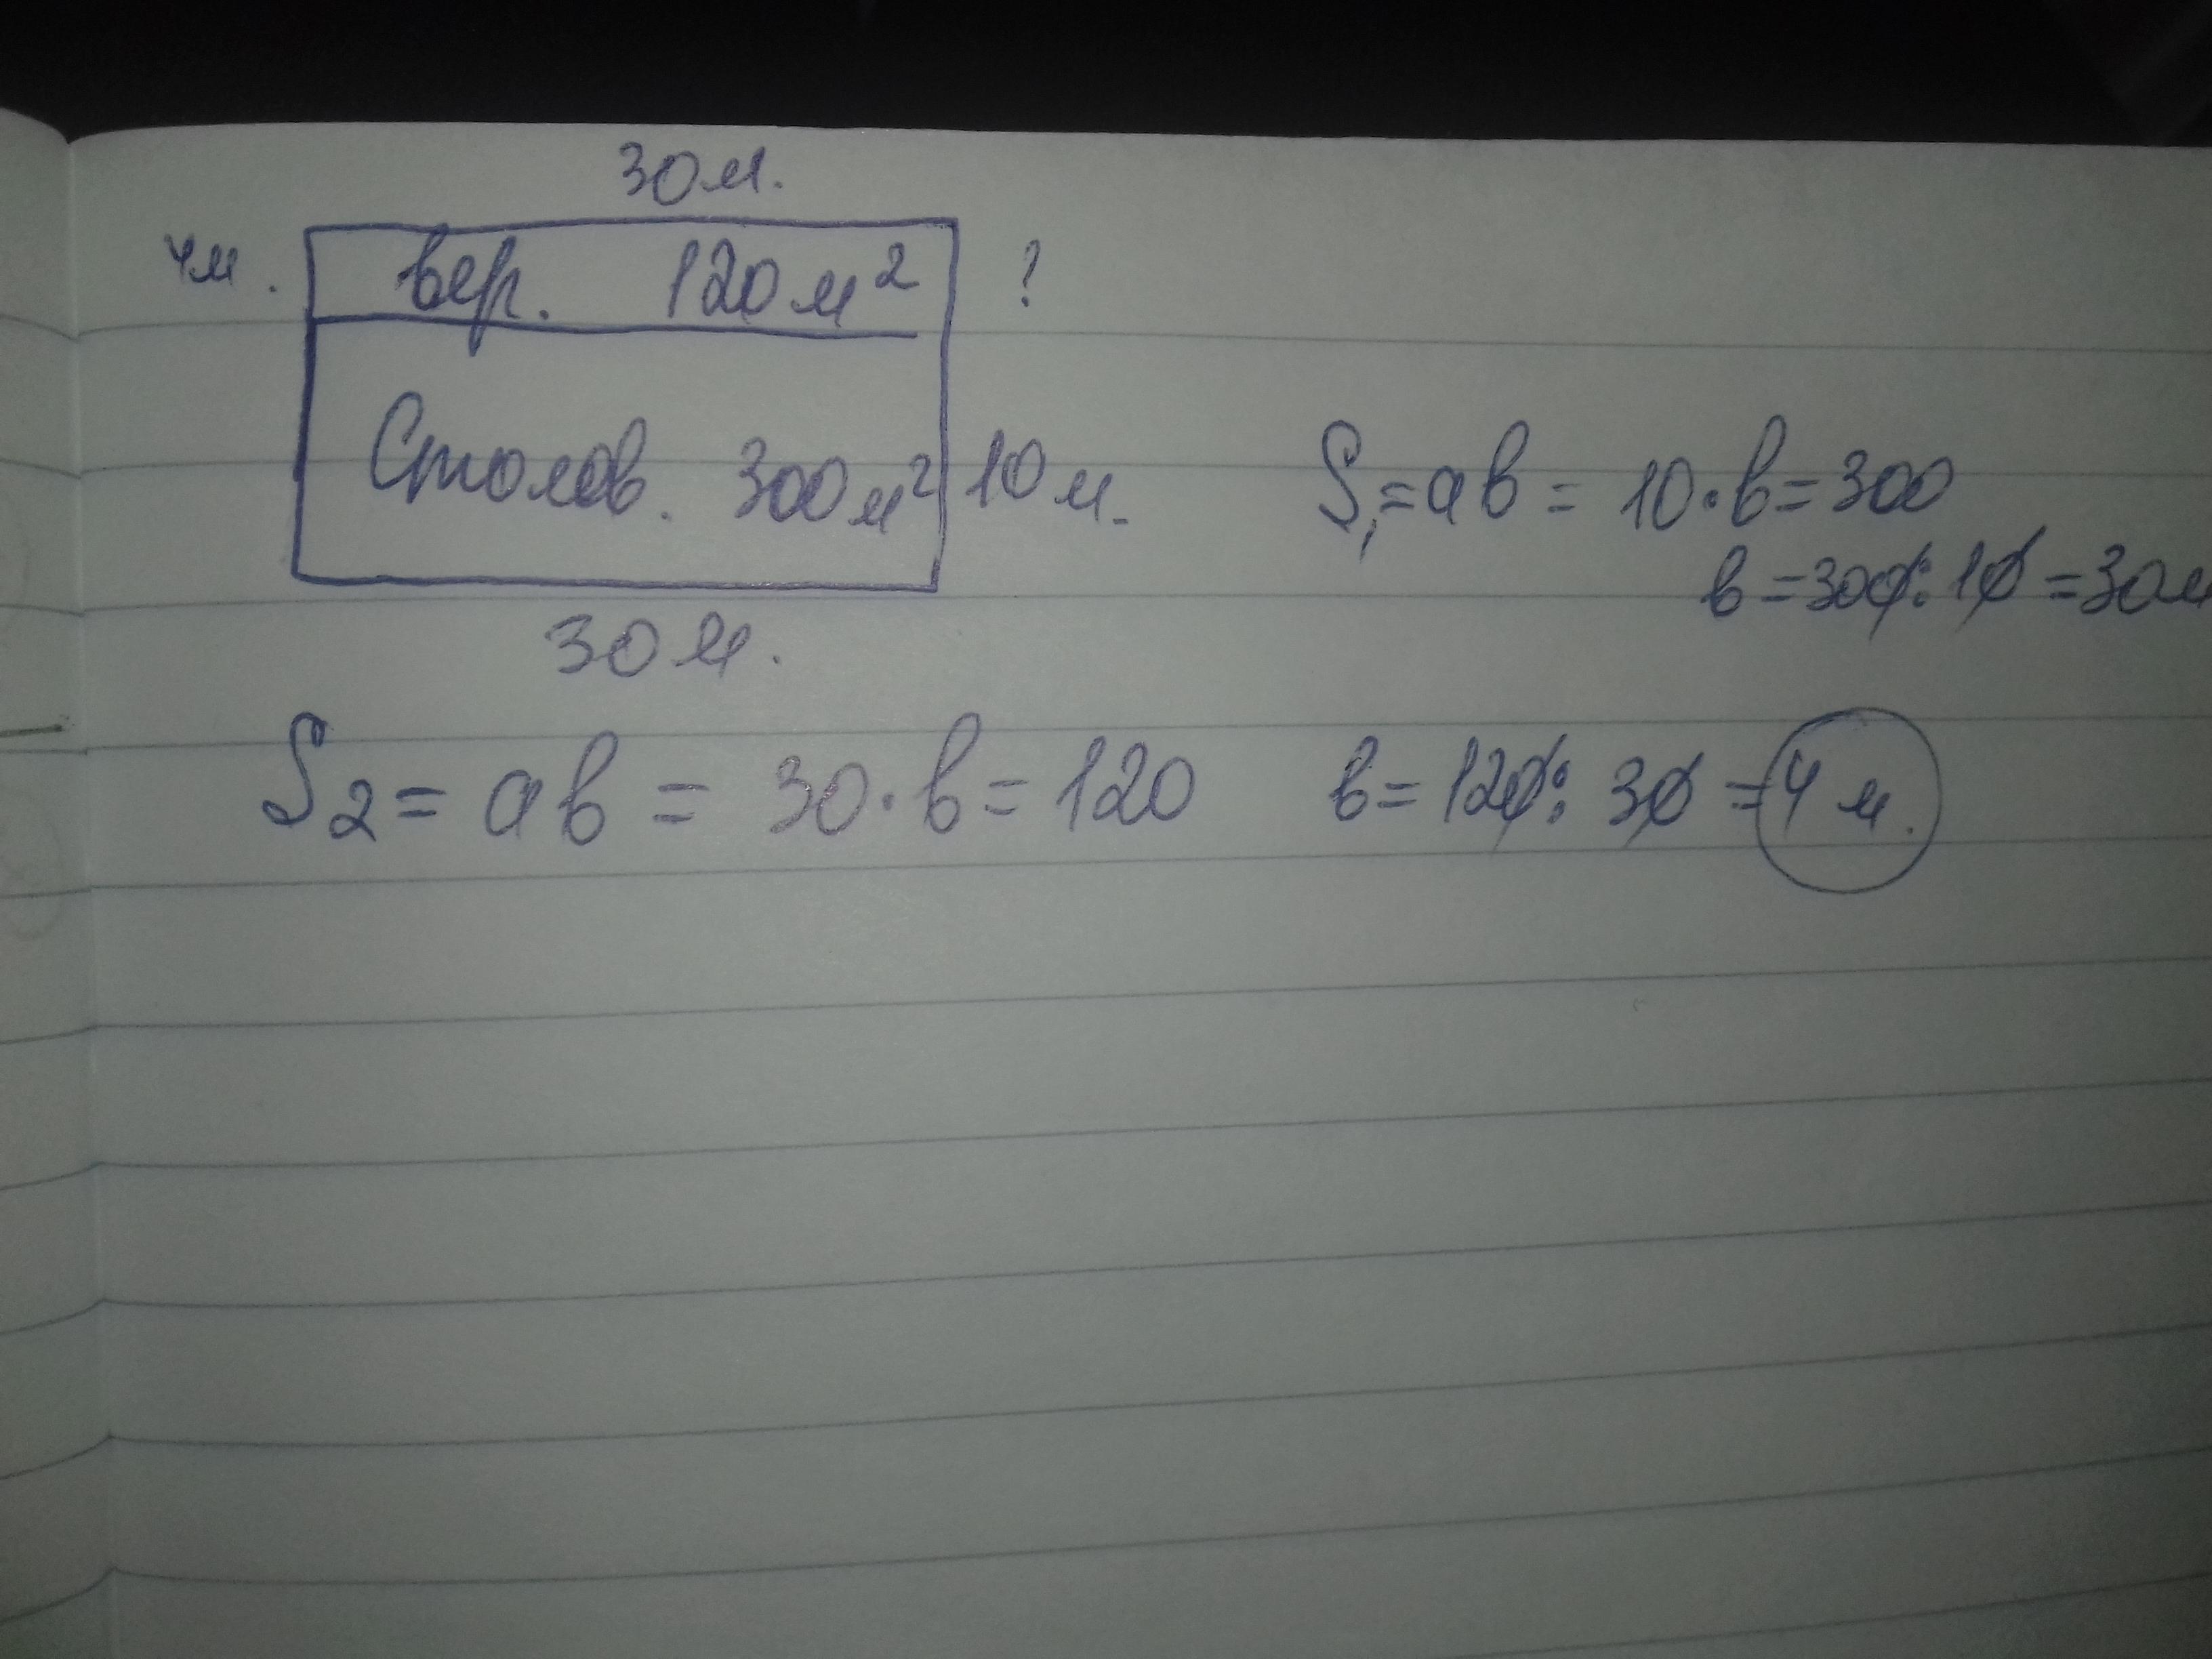 30 м.
4м. вер. 120 м² ?
Столов. 300 м² 10 м.
30 м.
S₁ = ав = 10·в = 300
в = 300 : 10 = 30м
S₂ = ав = 30·в = 120 в = 120 : 30 = 4 м.